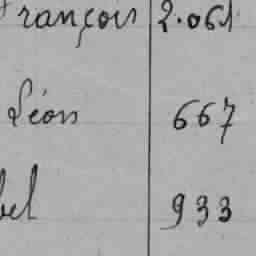 François 2.061
Léon 667
bel 933